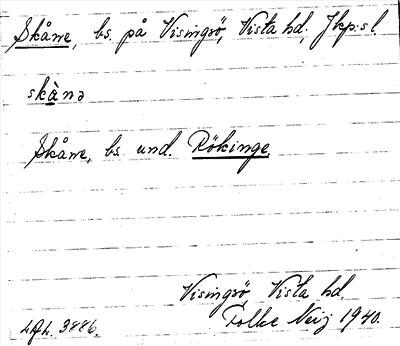 Skåne, bs. på Visingsö, Vista hd, Jkp:s l.
skànə
Skåne, bs. und. Rökinge.
Visingsö, Vista hd.
Folke Neij 1940.
LAL. 3886.